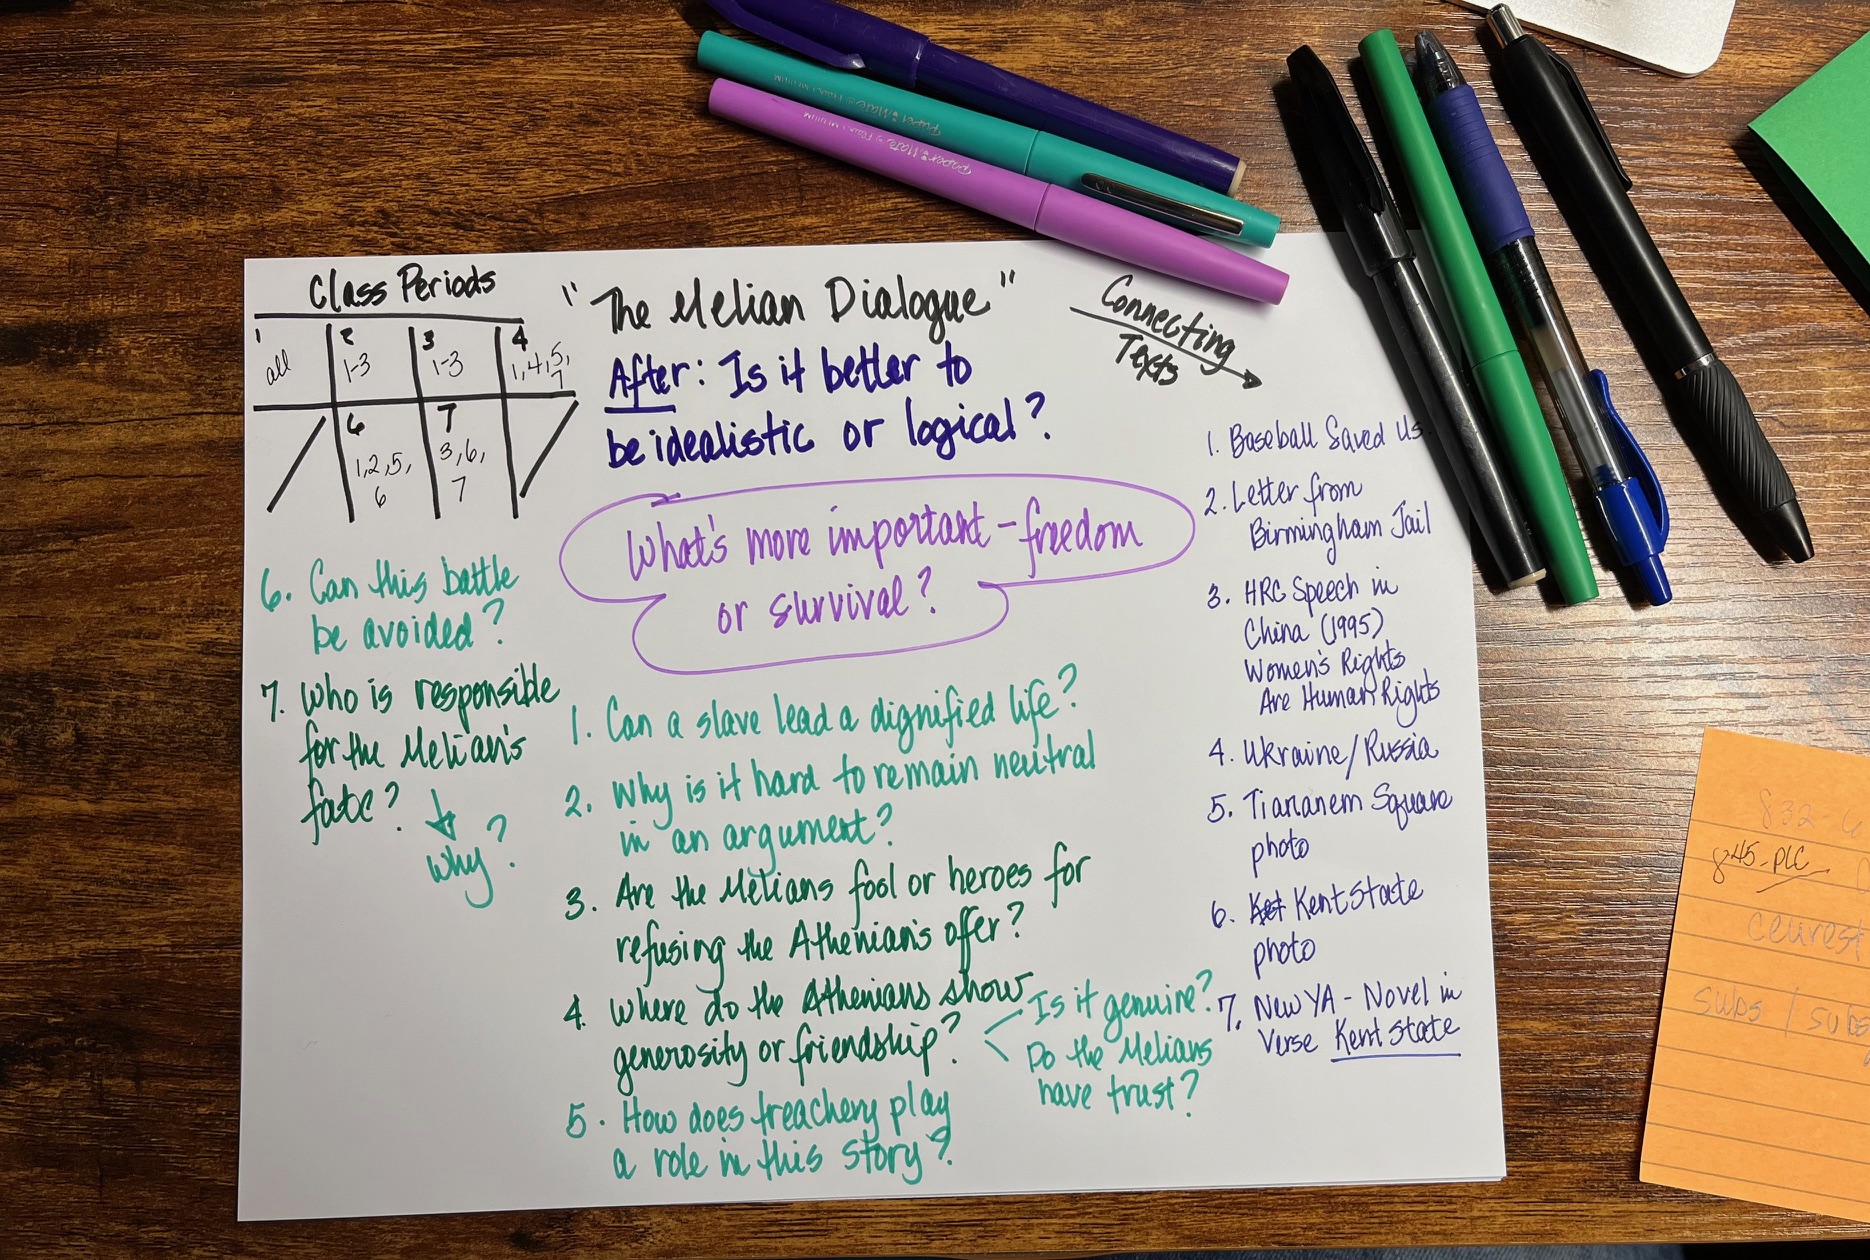 Paper Mate Flair · MEDIUM
Paper Mate Flair · MEDIUM
Class Periods
1
all
2
1-3
3
1-3
4
1,4,5,
7
6
1,2,5,
6
7
3,6,
7
"The Melian Dialogue"
After: Is it better to
be idealistic or logical?
What's more important - freedom
or survival?
1. Can a slave lead a dignified life?
2. Why is it hard to remain neutral
in an argument?
3. Are the Melians fool or heroes for
refusing the Athenian's offer?
4. Where do the Athenians show
generosity or friendship?
Is it genuine?
Do the Melians
have trust?
5. How does treachery play
a role in this story?
6. Can this battle
be avoided?
7. Who is responsible
for the Melian's
fate?
Why?
Connecting
Texts
1. Baseball Saved Us
2. Letter from
Birmingham Jail
3. HRC Speech in
China (1995)
Women's Rights
Are Human Rights
4. Ukraine/Russia
5. Tiananem Square
photo
6. Kent State
photo
7. New YA - Novel in
Verse Kent State
832-
845-PLC
subs / sub